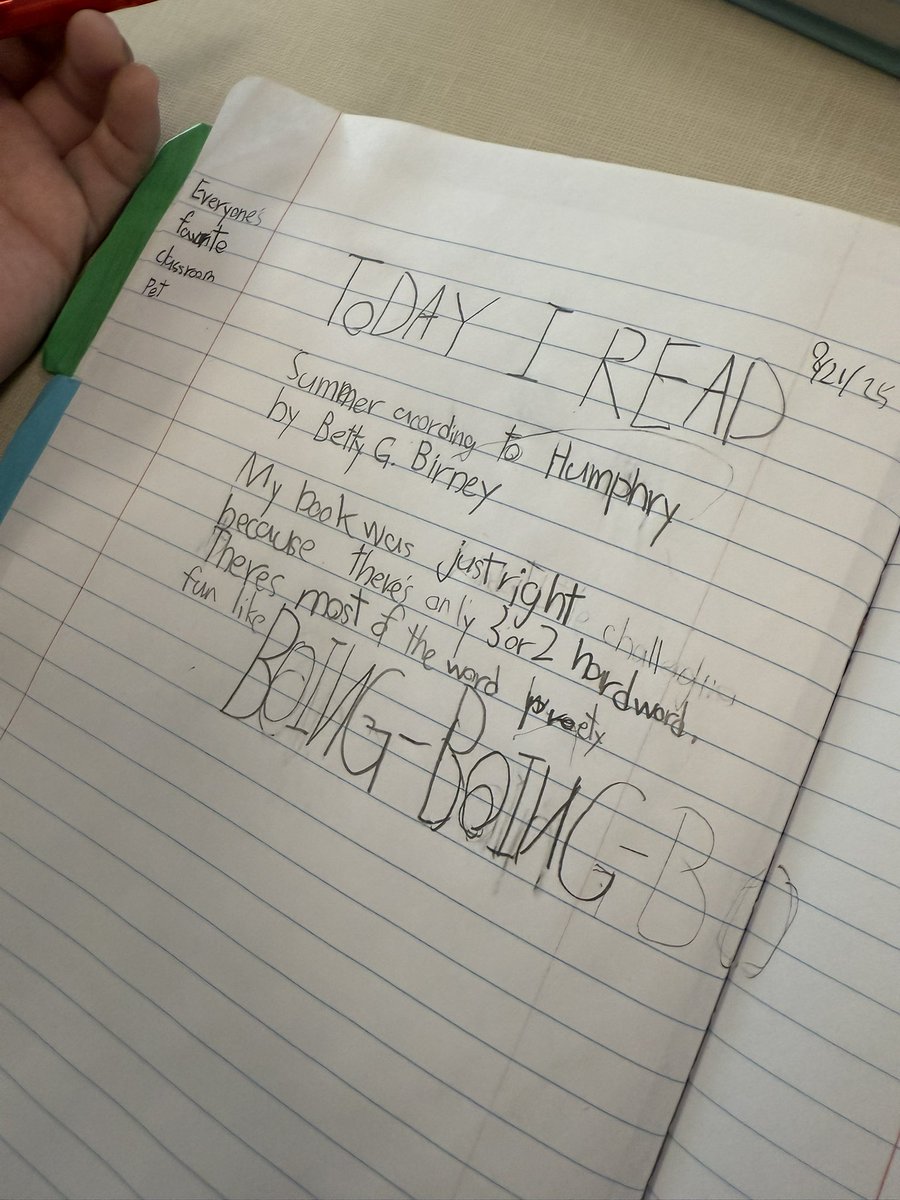 Everyone's
favorite
classroom
Pet
ToDAY I READ
8/21/25
Summer acording to Humphry
by Betty G. Birney
My book was just right
because there's only 3 or 2 hardword.
Theres most of the word preety
fun like
BOING-BOING-BO